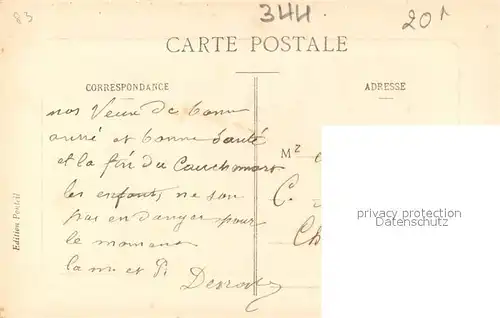 83
344.
20
CARTE POSTALE
CORRESPONDANCE
ADRESSE
nos Veux de bonne
anné et bonne Santé
et la fin du Cauchemars
les enfants, ne son
pas en danger pour
le moment
et
M
C.
Ch
Edition Postel
privacy protection
Datenschutz